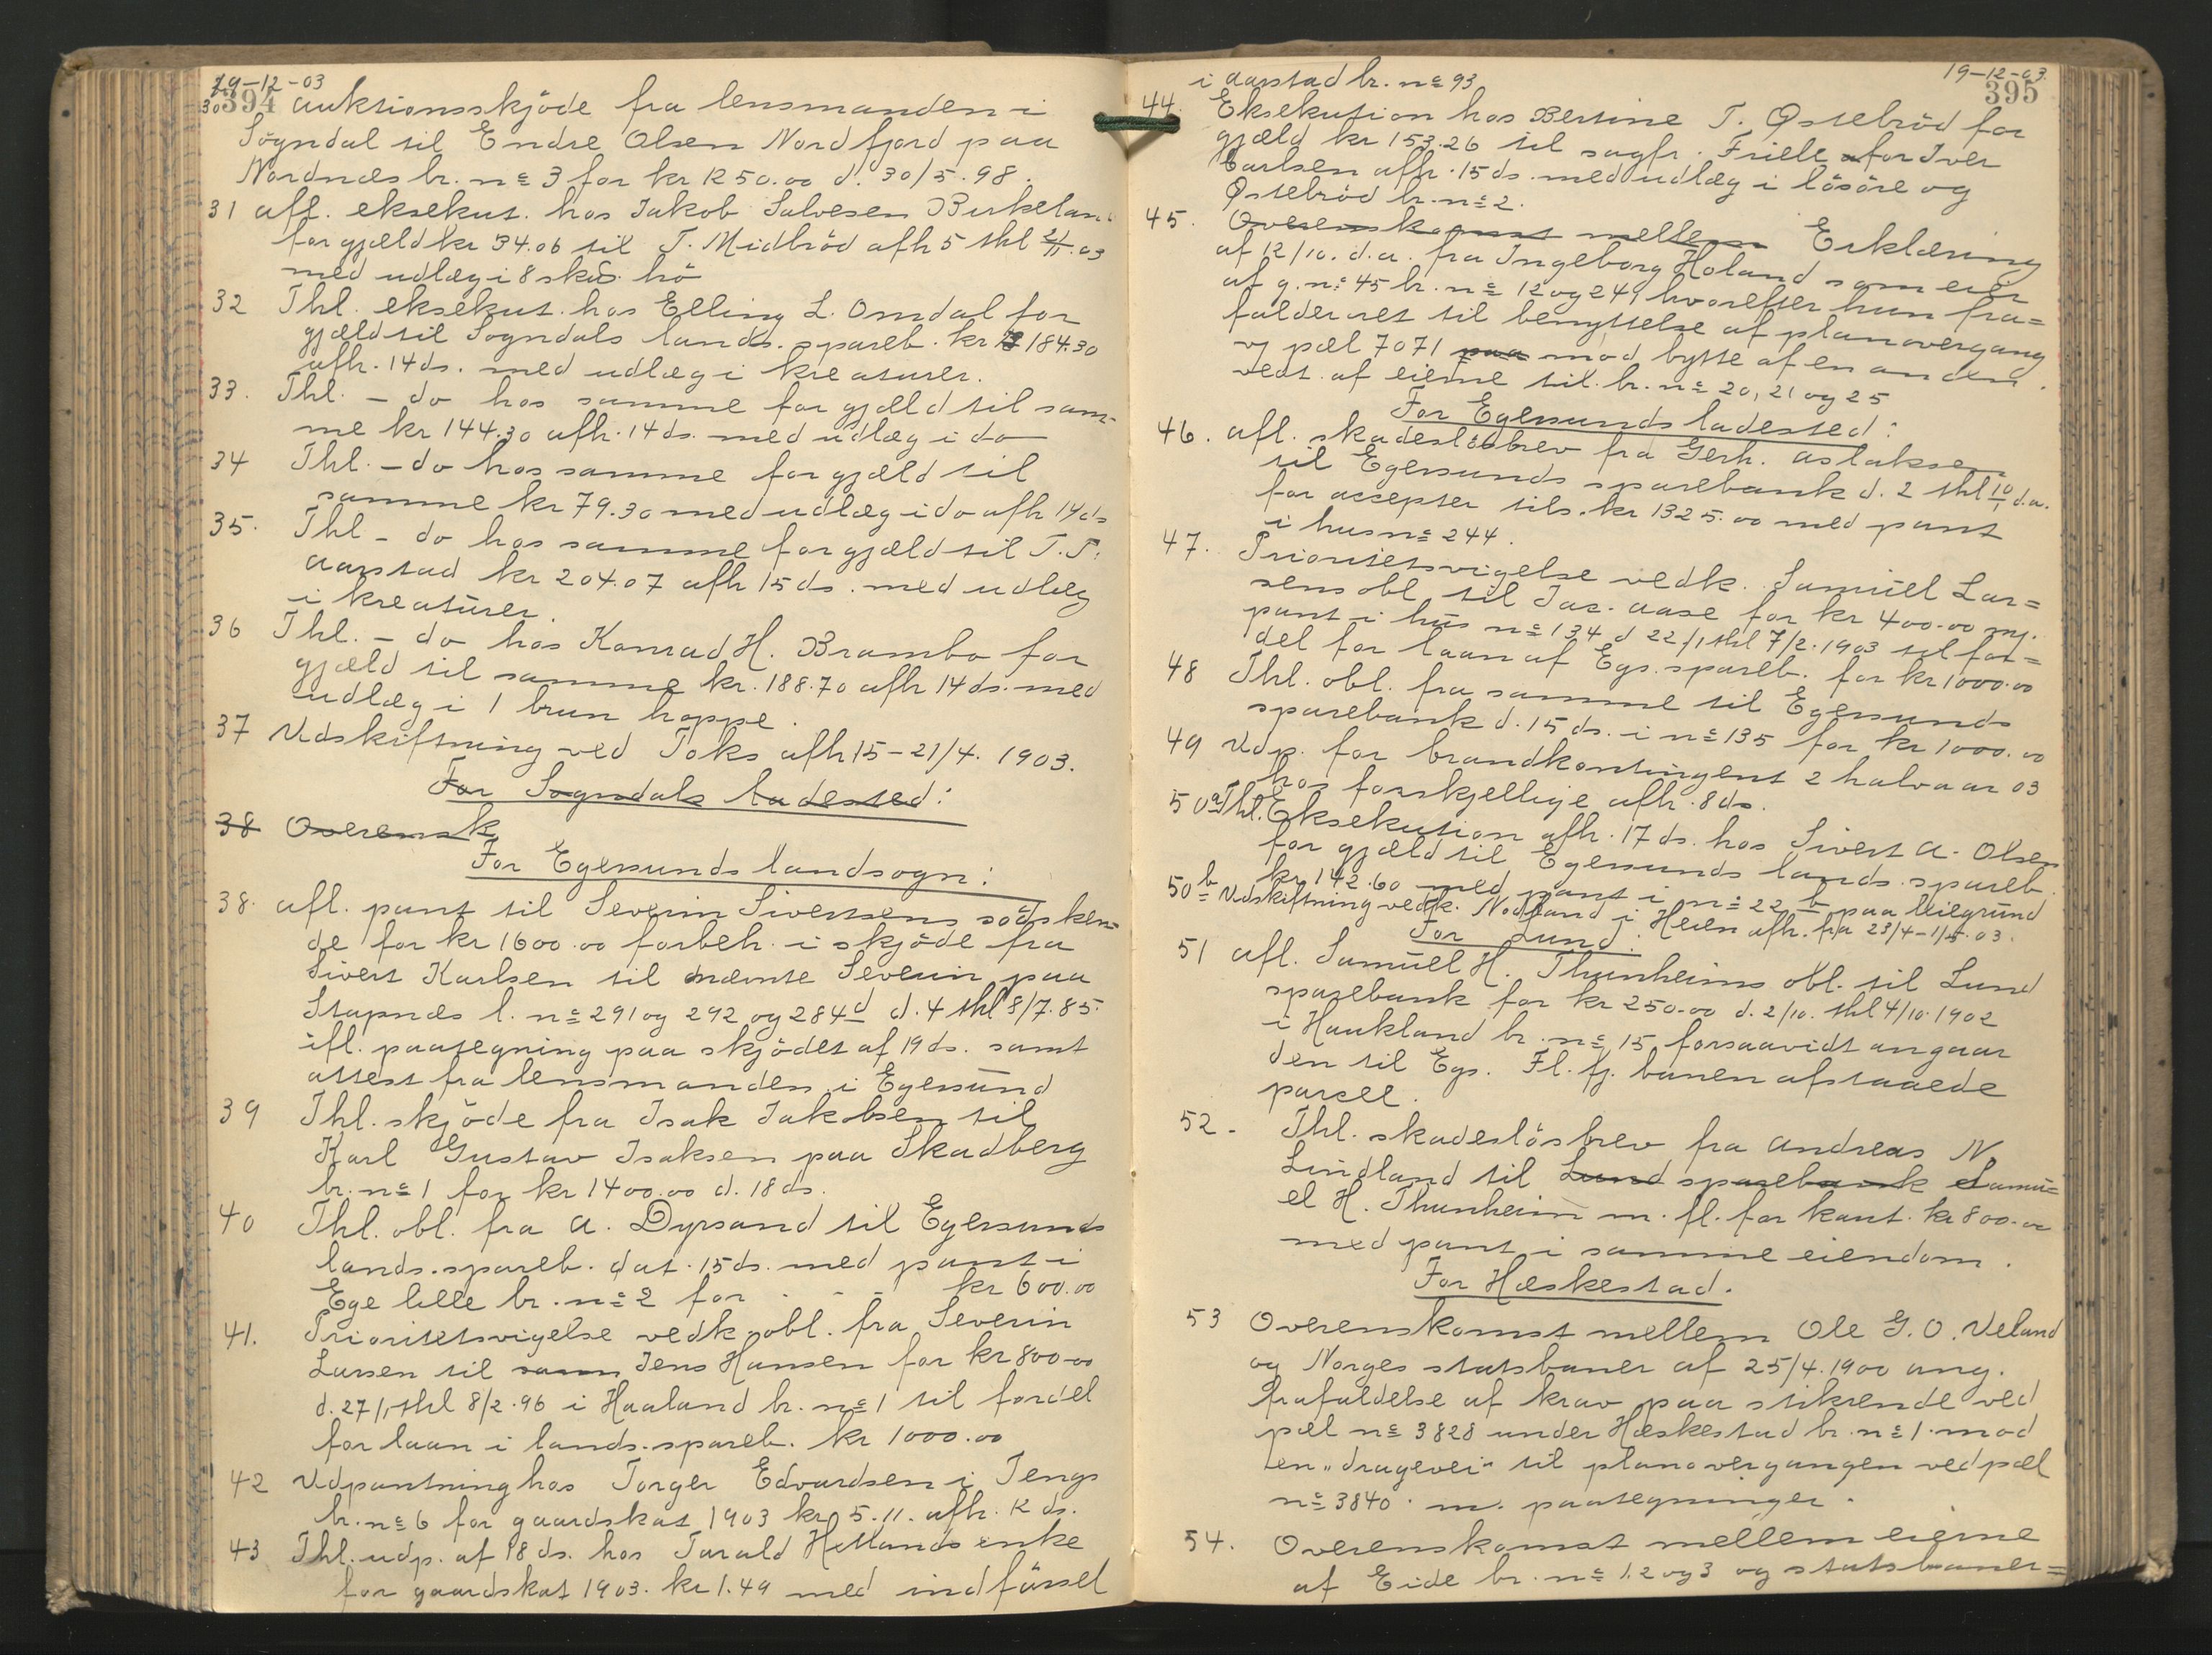 19-12-03
394
30 Auktionsskjöde fra lensmanden i
Sogndal til Endre Olsen Nordfjord paa
Nordnæs br. no 3 for kr 1250.00 d. 30/5.98.
31 Afl. eksekut. hos Jakob Salvesen Birkeland
for gjæld kr 34.06 til T. Midbröd afh 5 thl 21/11.03
med udlæg i 8 skd. hö
32 Thl. eksekut. hos Elling L. Omdal for
gjæld til Sogndals lands. spareb. kr 184.30
afh. 14 ds. med udlæg i kreaturer.
33. Thl. - do hos samme for gjæld til sam-
me kr 144.30 afh. 14 ds. med udlæg i do
34 Thl. - do hos samme for gjæld til
samme kr 79.30 med udlæg i do afh 14 ds
35. Thl - do hos samme for gjæld til T. T.
Aarstad kr 204.07 afh 15 ds. med udlæg
i kreaturer.
36 Thl. - do hos Konrad H. Brambo for
gjæld til samme kr. 188.70 afh 14 ds. med
udlæg i 1 brun hoppe.
37 Udskiftning ved Toks afh 15-21/4. 1903.
For Sogndals ladested:
38 Overensk
For Egersunds landsogn:
38. Afl. pant til Severin Sivertsens södsken-
de for kr 1600.00 forbeh. i skjöde fra
Sivert Karlsen til nævnte Severin paa
Stapnæs l. no 291 og 292 og 284d d. 4 thl 8/7.85.
ifl. paategning paa skjödet af 19 ds. samt
attest fra lensmanden i Egersund
39 Thl. skjöde fra Isak Jakobsen til
Karl Gustav Isaksen paa Skadberg
br. no 1 for kr 1400.00 d. 18 ds.
40 Thl. obl. fra A. Dyrsand til Egersunds
lands. spareb. dat. 15 ds. med pant i
Ege lille br. no 2 for - - - kr 600.00
41. Prioritetsvigelse vedk. obl. fra Severin
Larsen til sam Jens Hansen for kr 800.00
d. 27/1 thl 8/2.96 i Haaland br. no 1 til fordel
for laan i lands. spareb. kr 1000.00
42 Udpantning hos Torger Edvardsen i Tengs
br. no 6 for gaardskat 1903 kr 5.11. afh. 12 ds.
43 Thl. udp. af 18 ds. hos Tarald Hetlands enke
for gaardskat 1903. kr 1.49 med indförsel
19-12-03.
395
i Aarstad br. no 93
44. Eksekution hos Bertine T. Østebröd for
gjæld kr 153.26 til sagfr. Friele for Iver
Carlsen afh. 15 ds. med udlæg i lösöre og
Østebröd br. no 2.
45. Overenskomst mellem Erklæring
af 12/10. d.a. fra Ingeborg Höland som eier
af g. no 45 br. no 12 og 24, hvorefter hun fra=
falder ret til benyttelse af planovergang
v. pæl 7071 paa mod bytte af en anden
vedt. af eierne til br. no 20, 21 og 25
For Egersunds ladested:
46. Afl. skadeslösbrev fra Gerh. Aslaksen
til Egersunds sparebank d. 2 thl 10/1 d.a.
for accepter tils. kr 1325.00 med pant
i hus no 244.
47. Prioritetsvigelse vedk. Samuel Lar=
sens obl til Jac. Aase for kr 400.00 m.
pant i hus no 134 d 22/1 thl 7/2.1903 til for=
del for laan af Egs. spareb. for kr 1000.00
48 Thl. obl. fra samme til Egersunds
sparebank d. 15 ds. i no 135 for kr 1000.00
49 Udp. for brandkontingent 2 halvaar 03
hos forskjellige afh. 8 ds.
50a Thl. Eksekution afh. 17 ds. hos Sivert A. Olsen
for gjæld til Egersunds lands. spareb.
kr 142.60 med pant i no 22 b paa leiegrund
50b Udskiftning vedk. Nodland i Heien afh. fra 23/4-1/5.03.
For Lund.
51 Afl. Samuel H. Thunheims obl. til Lund
sparebank for kr 250.00 d. 2/10. thl 4/10.1902
i Haukland br. no 15 forsaavidt angaar
den til Egs. Fl. fj. banen afstaaede
parcel.
52. Thl. skadeslösbrev fra Andreas N.
Lindland til Lund sparebank Samu=
el H. Thunheim m. fl. for kaut. kr 800.00
med pant i samme eiendom.
For Hæskestad.
53 Overenskomst mellem Ole G. O. Veland
og Norges statsbaner af 25/4.1900 ang.
frafaldelse af krav paa stikrende ved
pæl no 3828 under Hæskestad br. no 1 mod
en "dragevei" til planovergangen ved pæl
no 3840. m. paategninger.
54. Overenskomst mellem eierne
af Eide br. no 1. 2 og 3 og statsbaner=